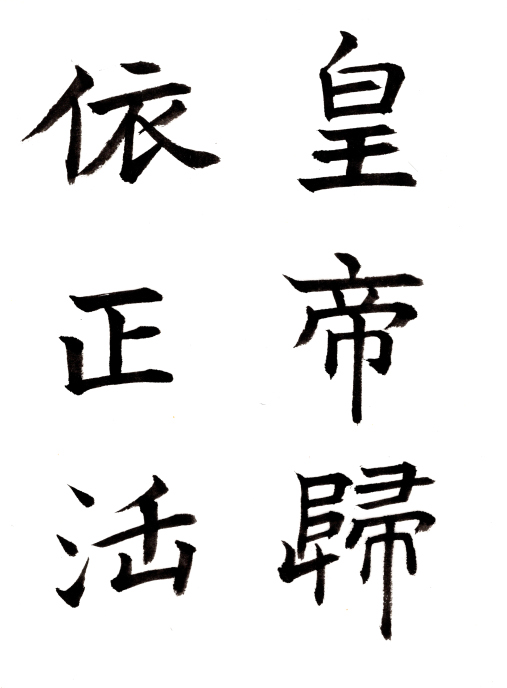 皇帝歸
依正法